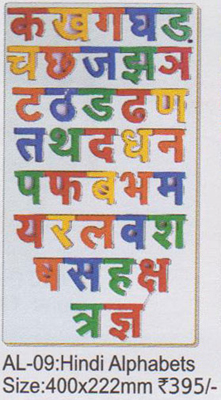 क ख ग घ ङ
च छ ज झ ञ
ट ठ ड ढ ण
त थ द ध न
प फ ब भ म
य र ल व श
ष स ह क्ष
त्र ज्ञ
AL-09:Hindi Alphabets
Size:400x222mm ₹395/-